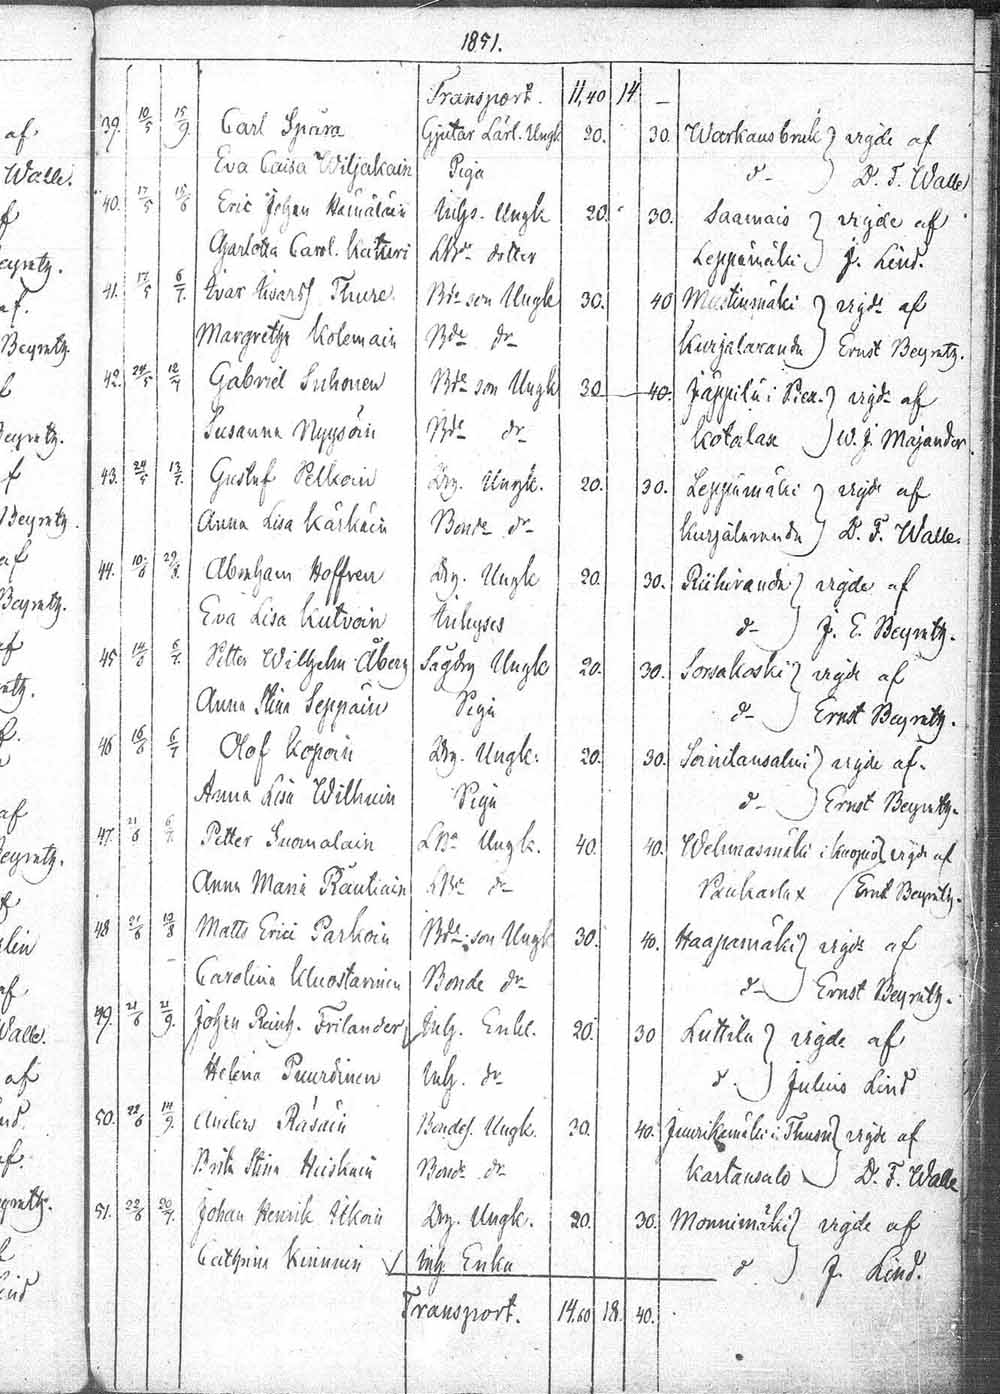 1851.
Transport. 11,40 14 –
39. 10/5 15/9 Carl Spåra Gjutar Lärl. Ungk 20. 30. Warkausbruk vigde af
Eva Caisa Wiljakain Piga d– D. F. Walle
40. 17/5 15/6 Eric Johan Hämäläin Inhs. Ungk 20. 30. Saamais vigde af
Charlotta Carol. Katheri LBde dotter Leppämäki J. Lind.
41. 17/5 6/7. Ivar Thure. Bde son Ungk 30. 40 Mustinmäki vigde af
Margretha Kolemain Bde dr Kurjalaranda Ernst Beyrath.
42. 24/5 12/7 Gabriel Suhonen Bde son Ungk 30 40. Jäppilä i Piex. vigde af
Susanna Nyyssöin Bde dr Kotalax W. J. Majander.
43. 24/5 13/7. Gustaf Pelkoin Drg. Ungk. 20. 30. Leppämäki vigde af
Anna Lisa Kärkäin Bonde dr Kurjalaranda D. F. Walle.
44. 10/6 29/8. Abraham Hoffren Drg. Ungk 20. 30. Riihiranda vigde af
Eva Lisa Kutvoin Inhyses d– J. E. Beyrath.
45 14/6 6/7. Petter Wilhelm Åberg Sågdrg Ungk 20. 30. Sorsakoski vigde af
Anna Stina Seppäin Piga d– Ernst Beyrath.
46 16/6 6/7 Olof Kopoin Drg. Ungk. 20. 30. Soinilansalmi vigde af
Anna Lisa Wilhuin Piga d– Ernst Beyrath.
47. 21/6 6/7. Petter Suomalain LBde Ungk. 40. 40. Wehmasmäki i Kuopio vigde af
Anna Maria Rautiain LBde dr Paukarlax Ernst Beyrath.
48 21/6 10/8 Matts Erici Parkoin Bde son Ungk 30. 40. Haapamäki vigde af
Carolina Kluostarinen Bonde dr d– Ernst Beyrath.
49. 21/6 21/9. Johan Reinh. Frilander Inh. Enkl. 20. 30 Luttila vigde af
Helena Puurdinen Inh. dr d. Julius Lind
50. 22/6 14/9. Anders Räsäin Bondes. Ungk. 30. 40. Juurikamäki i Thusn vigde af
Brita Stina Heiskain Bonde dr Kartansalo D. F. Walle
51. 22/6 20/7. Johan Henrik Itkoin Drg. Ungk. 20. 30. Monnimäki vigde af
Cathrina Kinnuin Inh. Enka d. J. Lind.
Transport. 14,60 18. 40.